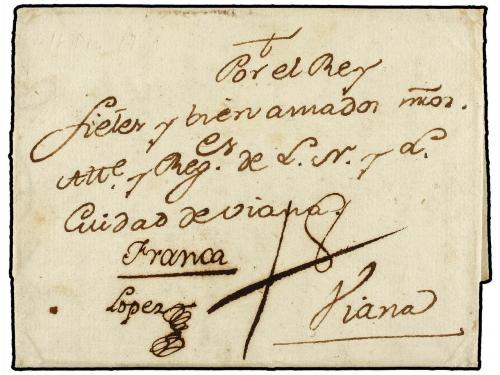 Por el Rey
fieles y bien amados ños.
Alle. y Reg.es de L. N. y L.
Cuidad de Viana.
Franca
Lopez
Viana